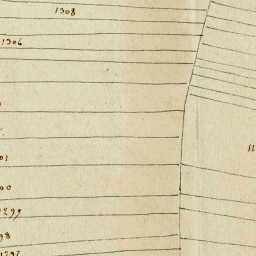 1308
1306
11
01
00
1299
98
1297